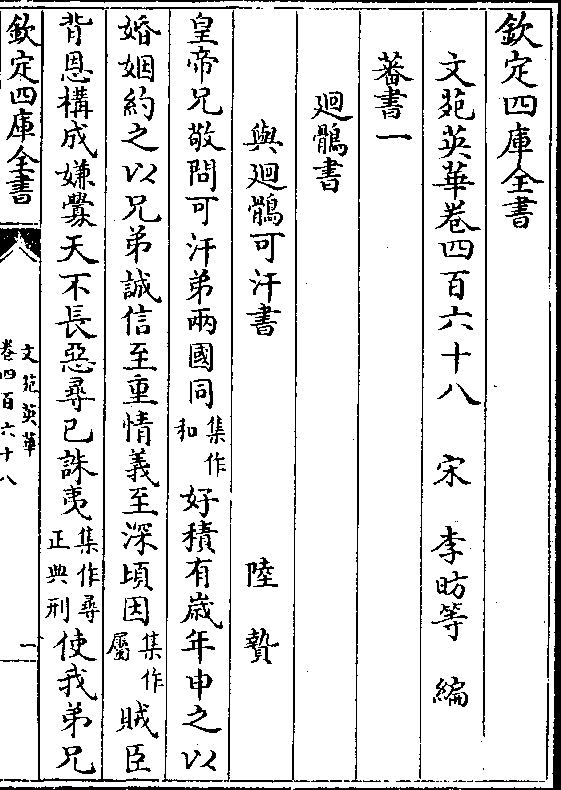 欽定四庫全書
文苑英華卷四百六十八　宋　李昉等　編
蕃書一
迴鶻書
與迴鶻可汗書　陸贄
皇帝兄敬問可汗弟兩國同集作和好積有歲年申之以
婚姻約之以兄弟誠信至重情義至深頃因集作屬賊臣
背恩構成嫌釁天不長惡尋已誅夷集作尋正典刑使我弟兄
欽定四庫全書
文苑英華
卷四百六十八
一